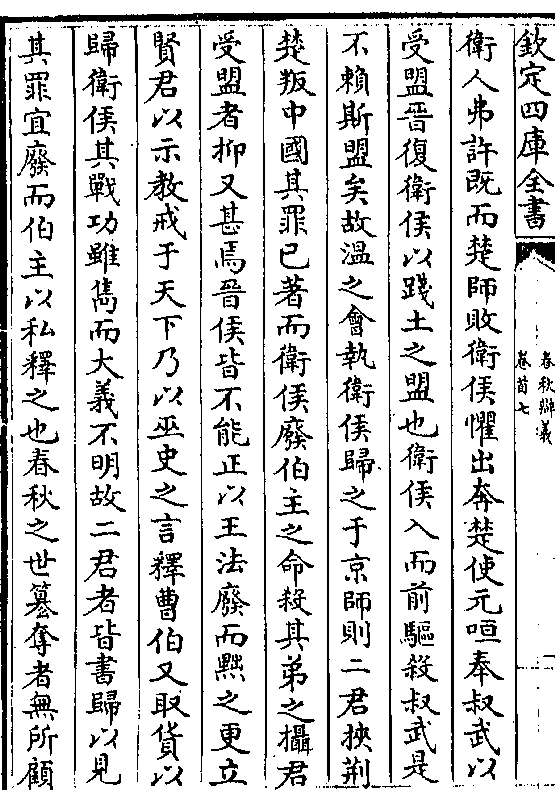 欽定四庫全書
春秋辯義
卷首七
衛人弗許既而楚師敗衛侯懼出奔楚使元咺奉叔武以
受盟晉復衛侯以踐土之盟也衛侯入而前驅殺叔武是
不賴斯盟矣故温之會執衛侯歸之于京師則二君挾荆
楚叛中國其罪已著而衛侯廢伯主之命殺其弟之攝君
受盟者抑又甚焉晉侯皆不能正以王法廢而黜之更立
賢君以示教戒于天下乃以巫史之言釋曹伯又取貨以
歸衛侯其戰功雖雋而大義不明故二君者皆書歸以見
其罪宜廢而伯主以私釋之也春秋之世簒奪者無所顧